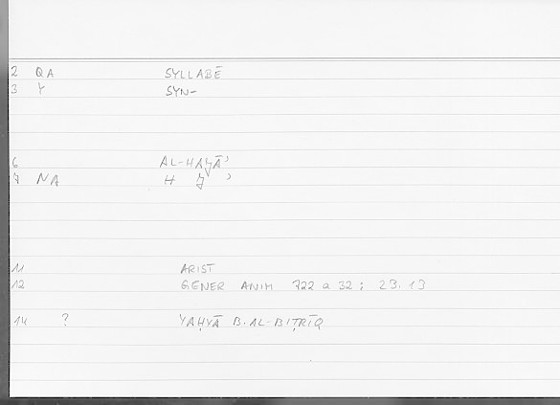 2 QA SYLLABĒ
3 Y SYN-
6 AL-HAǦĀʾ
7 NA H Ǧ ʾ
11 ARIST
12 GENER ANIM 722 a 32 ; 23.13
14 ? YAḤYĀ B. AL-BIṬRĪQ